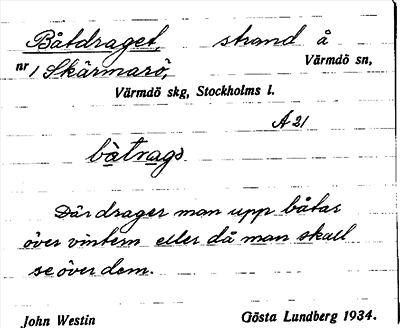 Båtdraget, strand å
nr 1 Skärmarö, Värmdö sn,
Värmdö skg, Stockholms l.
A 21
bàtrag
Där drager man upp båtar
över vintern eller då man skall
se över dem.
John Westin Gösta Lundberg 1934.